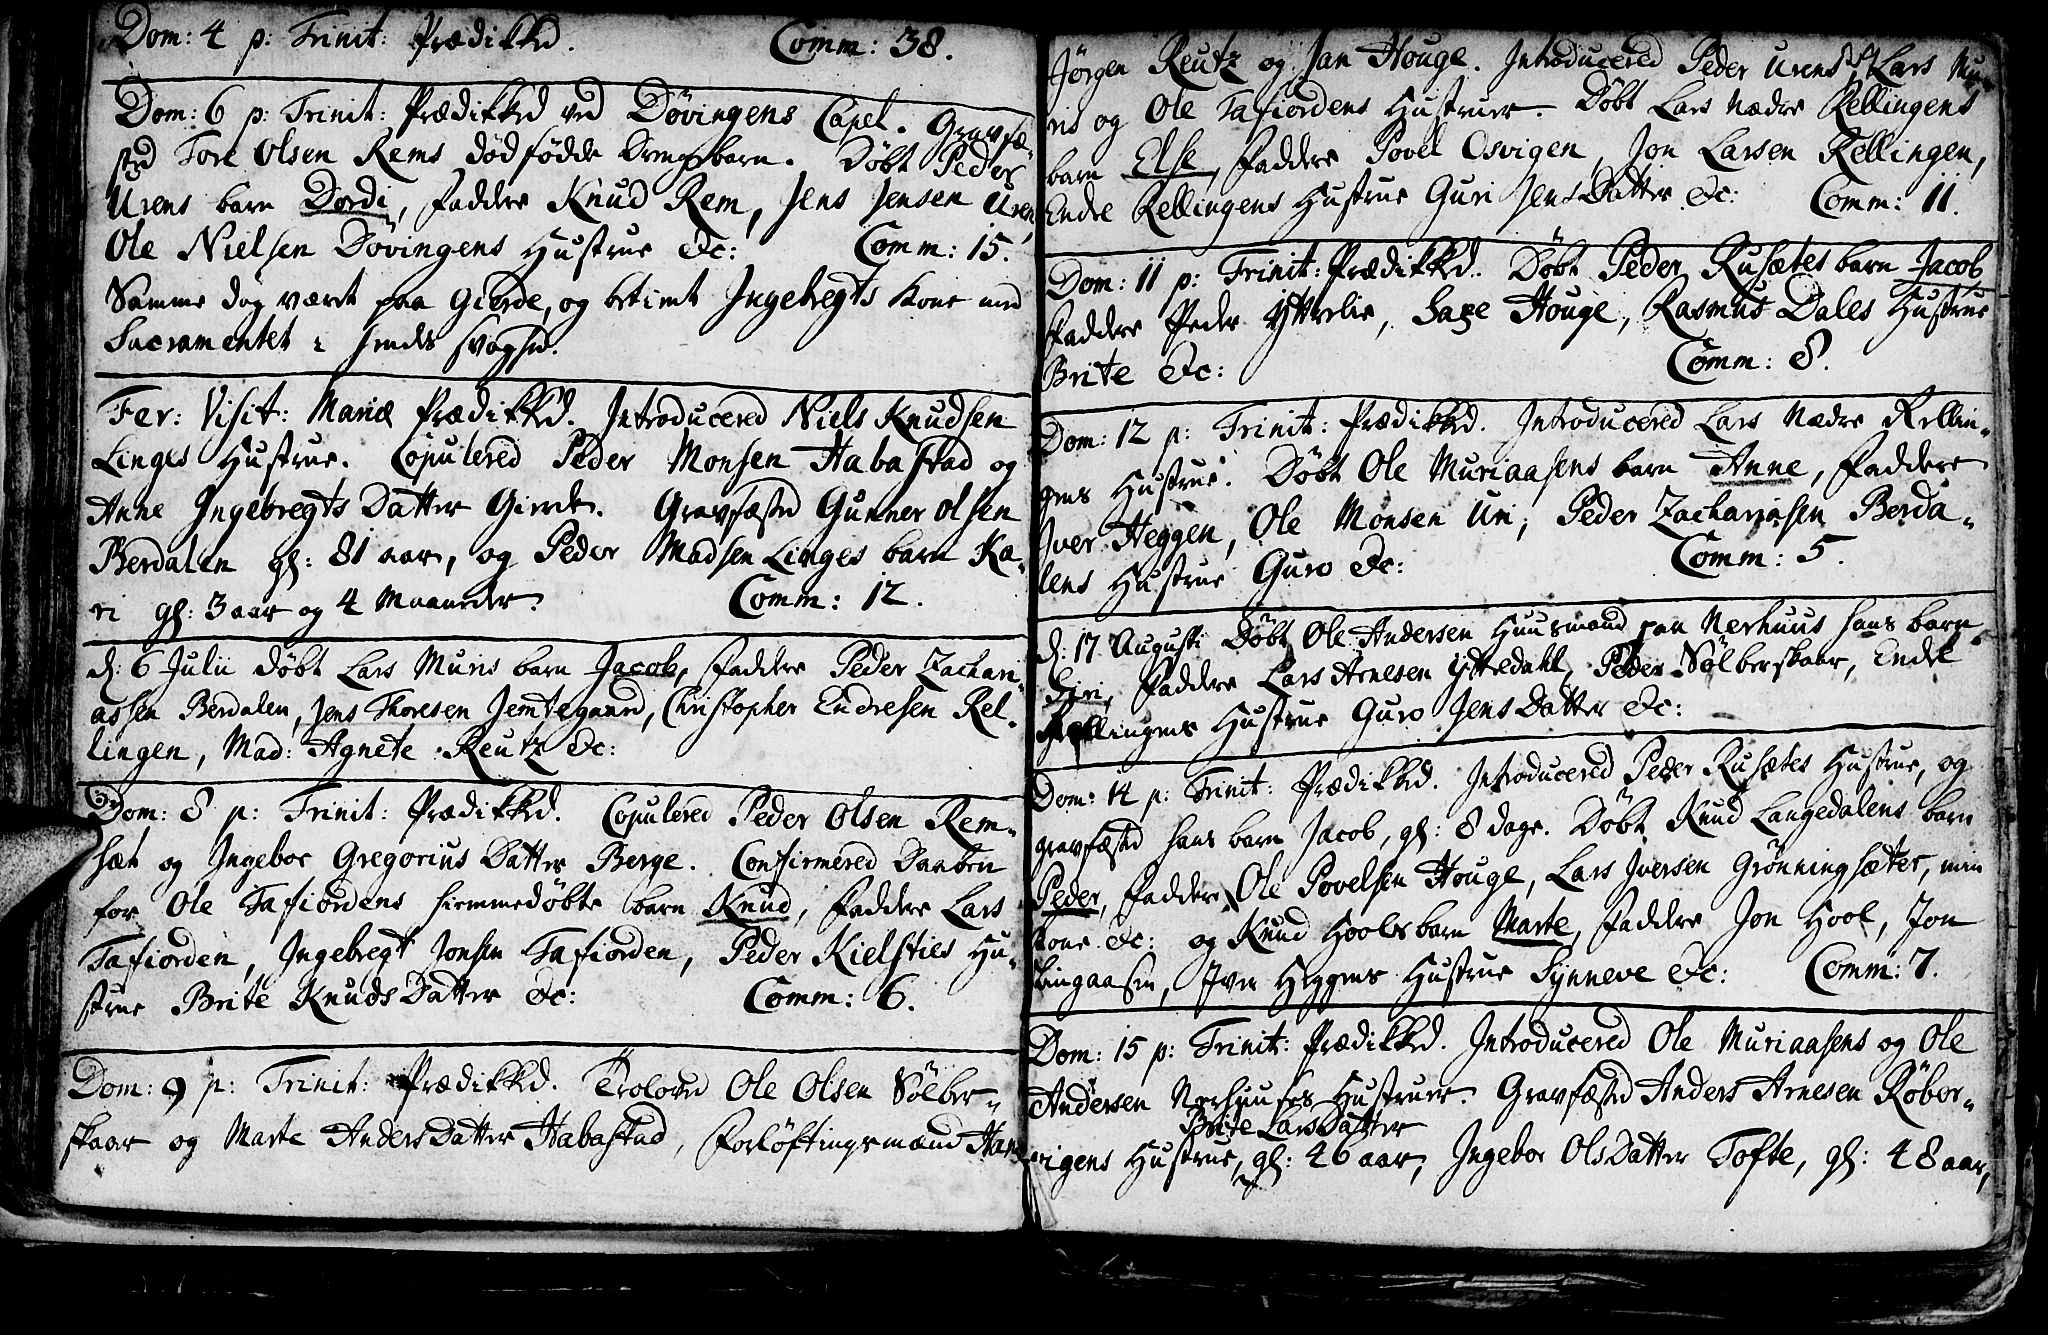 Dom: 4 p: Trinit: Prædikked. Comm: 38.
Dom: 6 p: Trinit: Prædikked ved Døvingens Capel. Gravfæ-
sted Tore Olsen Rems dødfødde Drengebarn. Døbt Peder
Urens barn Dordi, Faddere Knud Rem, Jens Jensen Uren,
Ole Nielsen Døvingens Hustrue &c: Comm: 15.
Samme dag været paa Gierde, og betient Ingebregts Kone med
Sacramentet i hendes svaghed.
Fer: Visit: Mariæ Prædikked. Introducered Niels Knudsen
Linges Hustrue. Copulered Peder Monsen Habastad og
Anne Ingebregts Datter Gierde. Gravfæsted Gunner Olsen
Berdalen gl: 81 aar, og Peder Madsen Linges barn Ka-
ri gl: 3 aar og 4 Maaneder. Comm: 12.
d: 6 Julii døbt Lars Muris barn Jacob, Faddere Peder Zachari-
assen Berdalen, Jens Thoresen Jemtegaard, Christopher Endresen Rel-
lingen, Mad: Agnete Reutz &c:
Dom: 8 p: Trinit: Prædikked. Copulered Peder Olsen Rem-
sæt og Ingebor Gregorius Datter Berge. Confirmered Daaben
for Ole Tafiordens hiemmedøbte barn Knud, Faddere Lars
Tafiorden, Ingebregt Jonsen Tafiorden, Peder Kielsties Hu-
strue Brite Knuds Datter &c: Comm: 6.
Dom: 9 p: Trinit: Prædikked. Troloved Ole Olsen Sølber-
skaar og Marte Anders Datter Habastad, Forløftingsmænd Hans
Jørgen Reutz og Jan Houge. Introducered Peder Urens, Lars Mu-
ris og Ole Tafiordens Hustruer. Døbt Lars Nædre Rellingens
barn Else, Faddere Povel Osvigen, Jon Larsen Rellingen,
Endre Rellingens Hustrue Guri Jens Datter &c: Comm: 11.
Dom: 11 p: Trinit: Prædikked. Døbt Peder Rusætes barn Jacob
Faddere Peder Ytterlie, Saxe Houge, Rasmus Dales Hustrue
Brite &c: Comm: 8.
Dom: 12 p: Trinit: Prædikked. Introducered Lars Nædre Rellin-
gens Hustrue. Døbt Ole Muriaasens barn Anne, Faddere
Iver Heggen, Ole Monsen Uri, Peder Zachariasen Berda-
lens Hustrue Guro &c: Comm: 5.
d: 17 Augusti Døbt Ole Andersen Huusmand paa Nerhuus hans barn
Siri, Faddere Lars Arnesen Yttredahl, Peder Sølberskaar, Endre
Rellingens Hustrue Guro Jens Datter &c:
Dom: 14 p: Trinit: Prædikked. Introducered Peder Rusætes Hustrue, og
gravfæsted hans barn Jacob, gl: 8 dage. Døbt Knud Langedalens barn
Peder, Faddere Ole Povelsen Houge, Lars Iversen Grønningsæter, min
Kone &c: og Knud Hools barn Marte, Faddere Jon Hool, Jon
Lingaasen, Iver Heggens Hustrue Synneve &c: Comm: 7.
Dom: 15 p: Trinit: Prædikked. Introducered Ole Muriaasens og Ole
Andersen Nerhuuses Hustruer. Gravfæsted Anders Arnesen Røbor-
Brite Lars Datter
rigens Hustrue, gl: 46 aar, Ingebor Ols Datter Tofte, gl: 48 aar,